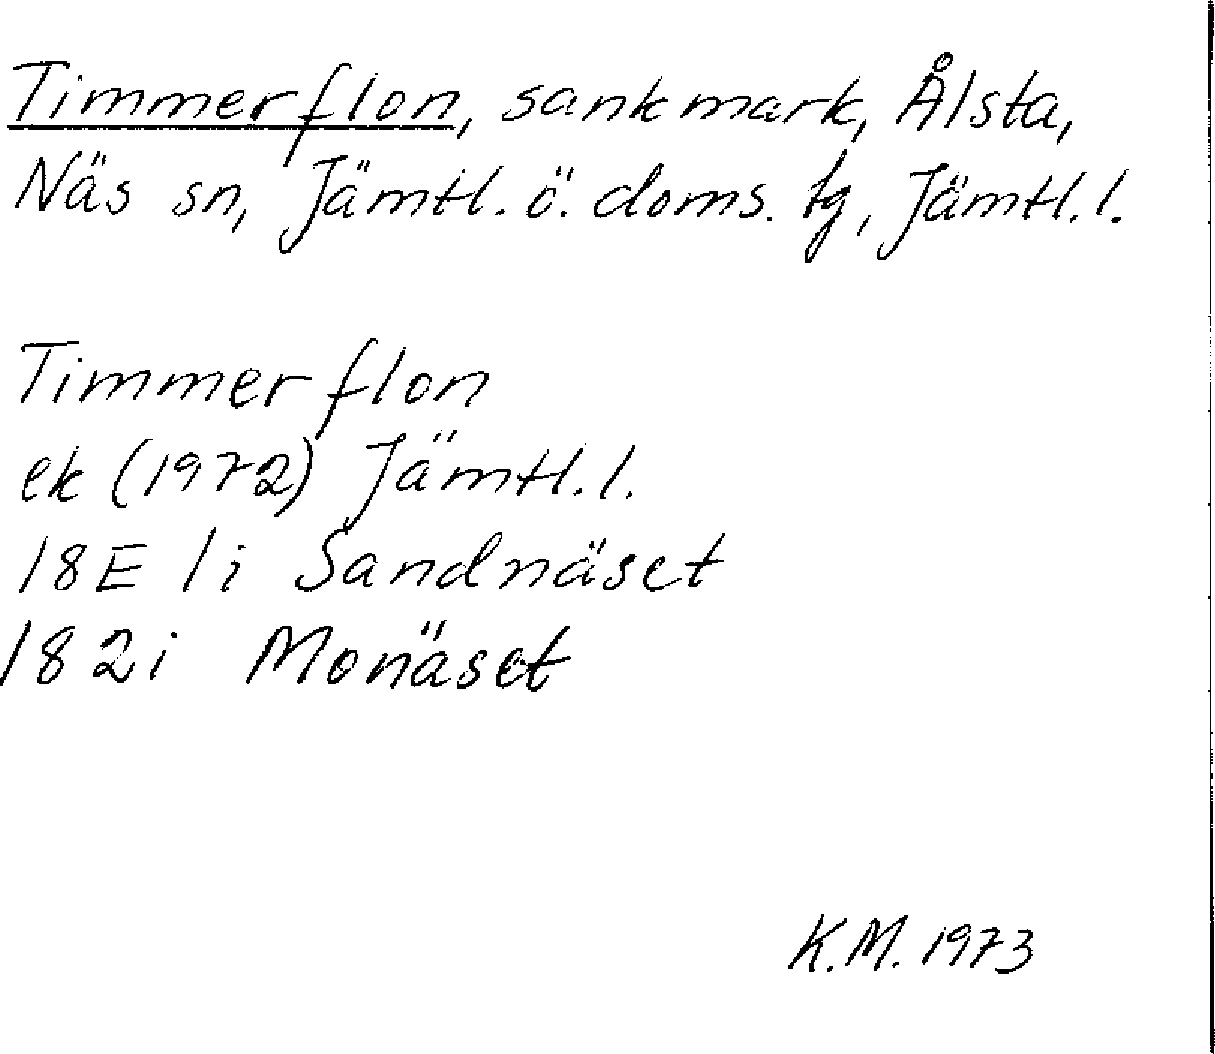 Timmerflon, sankmark, Ålsta,
Näs sn, Jämtl. ö. doms. tg, Jämtl. l.
Timmerflon
ek (1972) Jämtl. l.
18E 1i Sandnäset
182i Monäset
K.M. 1973